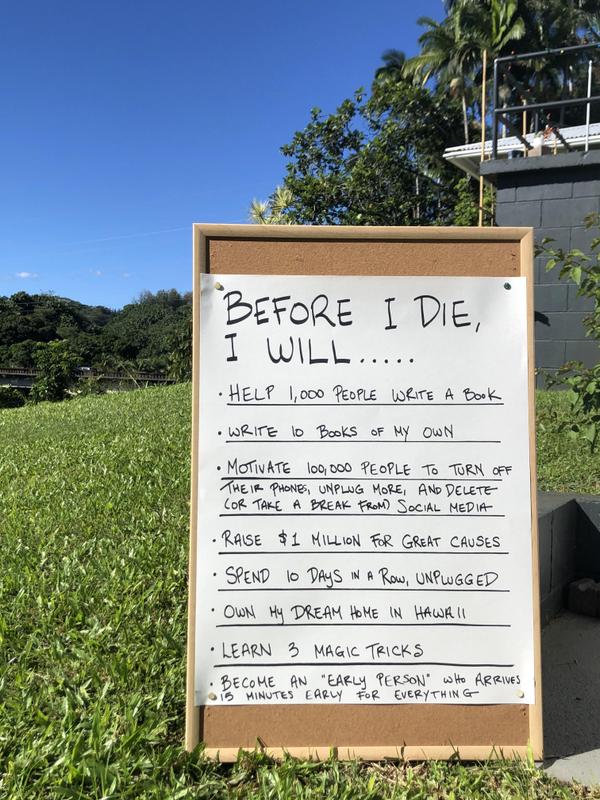 BEFORE I DIE,
I WILL.....
· HELP 1,000 PEOPLE WRITE A BOOK
· WRITE 10 BOOKS OF MY OWN
· MOTIVATE 100,000 PEOPLE TO TURN OFF
THEIR PHONES, UNPLUG MORE, AND DELETE
(OR TAKE A BREAK FROM) SOCIAL MEDIA
· RAISE $1 MILLION FOR GREAT CAUSES
· SPEND 10 DAYS IN A ROW, UNPLUGGED
· OWN MY DREAM HOME IN HAWAII
· LEARN 3 MAGIC TRICKS
· BECOME AN "EARLY PERSON" WHO ARRIVES
15 MINUTES EARLY FOR EVERYTHING